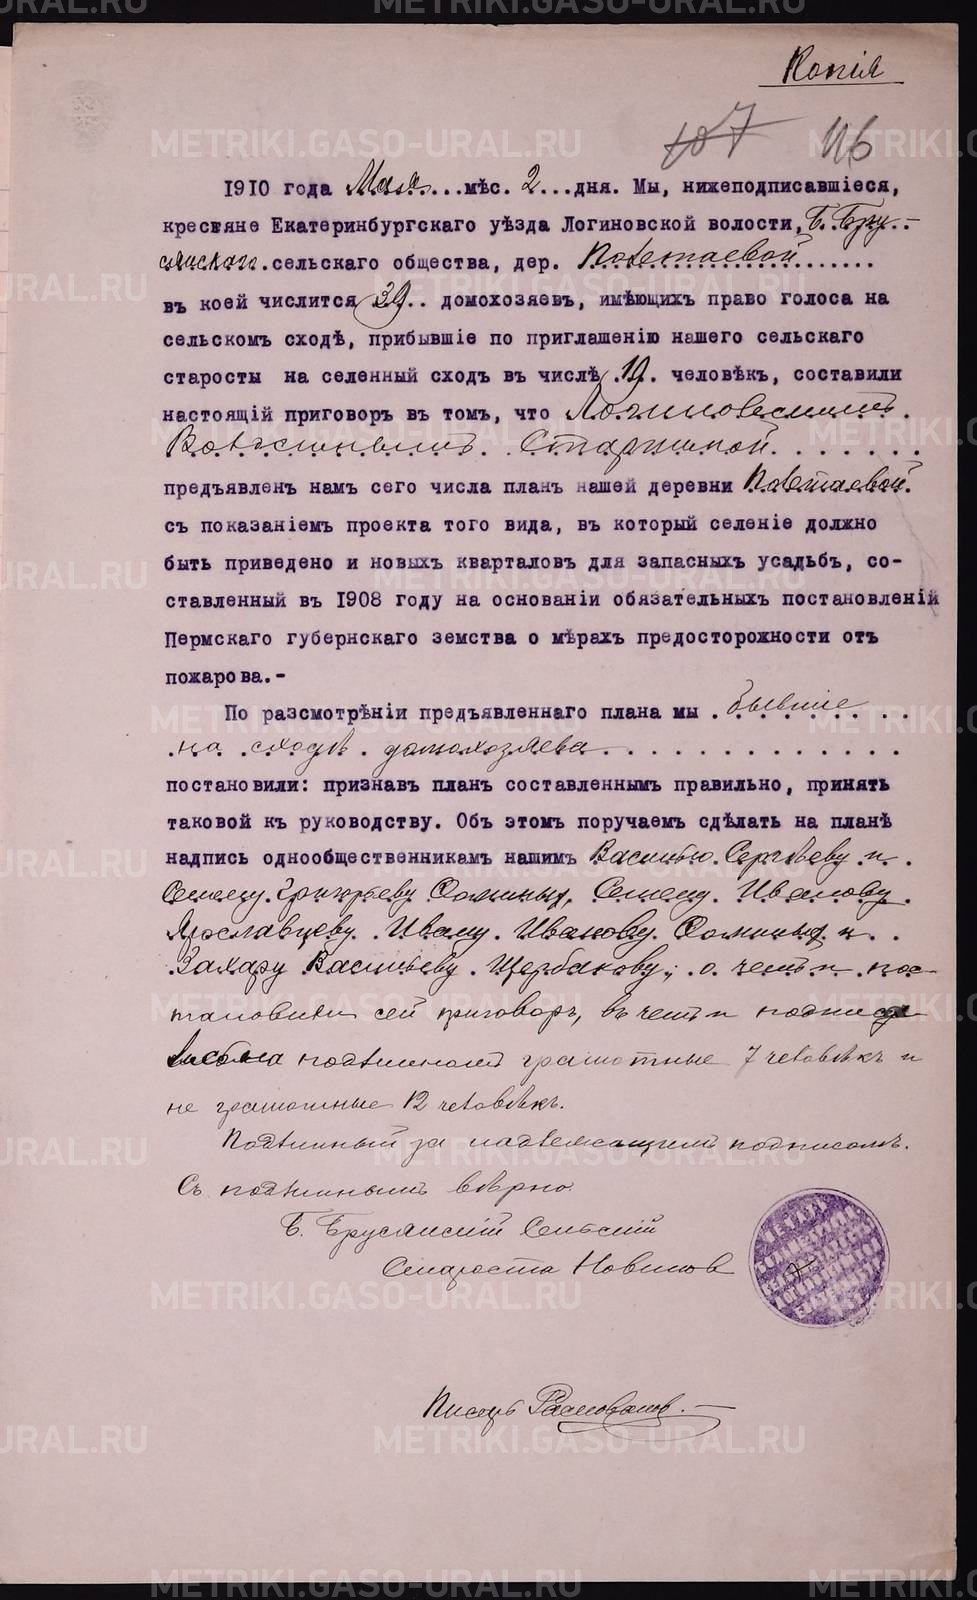 Копія
107 116
1910 года Мая...мѣс. 2...дня. Мы, нижеподписавшіеся,
кресвяне Екатеринбургскаго уѣзда Логиновской волости, Б. Бру-
сянскаго.сельскаго общества, дер. Полетаевой
въ коей числится 39.. домохозяевъ, имѣющихъ право голоса на
сельскомъ сходѣ, прибывшіе по приглашенію нашего сельскаго
старосты на селенный сходъ въ числѣ .19. человѣкъ, составили
настоящій приговоръ въ томъ, что Логиновскимъ.
Волостнымъ. Старшиной.
предъявленъ намъ сего числа планъ нашей деревни Полетаевой.
съ показаніемъ проекта того вида, въ который селеніе должно
быть приведено и новыхъ кварталовъ для запасныхъ усадьбъ, со-
ставленный въ 1908 году на основаніи обязательныхъ постановленій
Пермскаго губернскаго земства о мѣрахъ предосторожности отъ
пожарова.-
По разсмотрѣніи предъявленнаго плана мы . бывшіе
.на сходѣ. домохозяева
постановили: признавъ планъ составленнымъ правильно, принять
таковой къ руководству. Объ этомъ поручаемъ сдѣлать на планѣ
надпись однообщественникамъ нашимъ Василью. Сергѣеву и.
Семену. Григорьеву Соминых, Семену. Иванову.
Ярославцеву. Ивану. Иванову. Соминых и..
Захару Васильеву. Щербакову; о чемъ и пос-
тановили сей приговоръ, въ чемъ и подписуе-
подлинномъ грамотные 7 человѣкъ и
не грамотные 12 человѣкъ.
Подлинный за надлежащимъ подписомъ.
Съ подлиннымъ вѣрно
Б. Брусянскій Сельскій
Староста Новиков
Писарь
METRIKI.GASO-URAL.RU